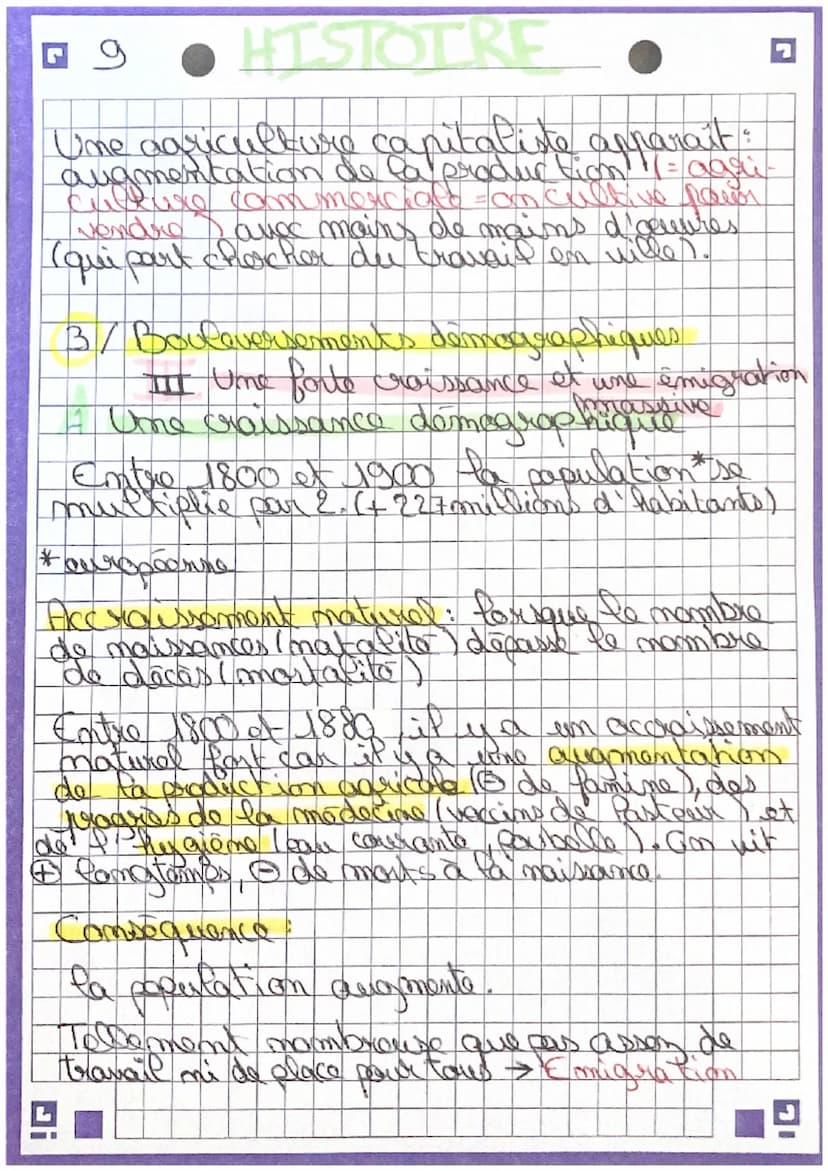 9 HISTOIRE
Une agriculture capitaliste apparait :
augmentation de la production (= agri-
culture commerciale = on cultive pour
vendre) avec moins de mains d'œuvres
(qui part chercher du travail en ville).
3/ Bouleversements démographiques
III Une forte croissance et une émigration
massive
A Une croissance démographique
Entre 1800 et 1900 la population* se
multiplie par 2. (+ 227 millions d'habitants)
* européenne
Accroissement naturel : lorsque le nombre
de naissances (natalité) dépasse le nombre
de décès (mortalité)
Entre 1800 et 1880, il y a un accroissement
naturel fort car il y a une augmentation
de la production agricole (⊖ de famine), des
progrès de la médecine (vaccins de Pasteur) et
de l'hygiène (eau courante, poubelle). On vit
⊕ longtemps, ⊖ de morts à la naissance.
Conséquence :
la population augmente.
Tellement nombreuse que pas assez de
travail ni de place pour tous → Emigration